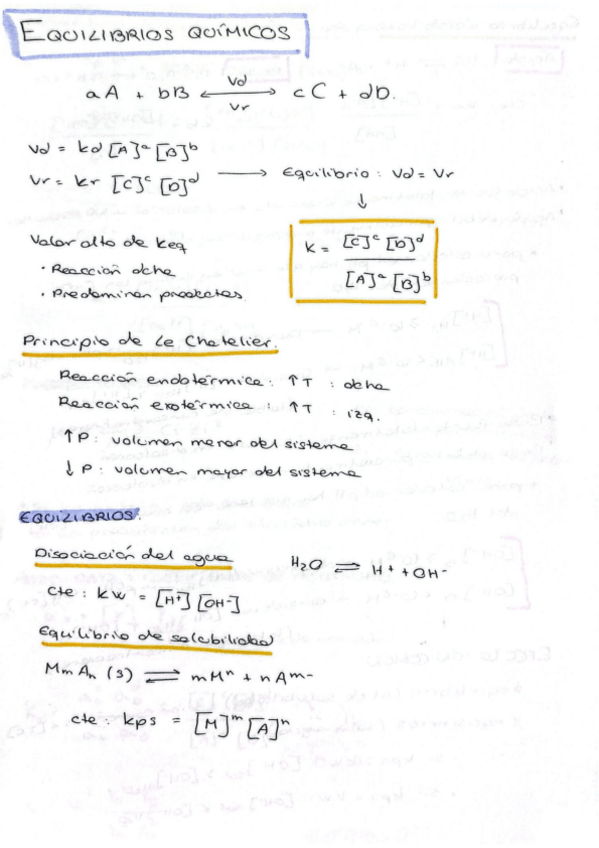 EQUILIBRIOS QUÍMICOS
aA + bB ⟷ cC + dD.
Vd
Vr
Vd = kd [A]ᵃ [B]ᵇ
Vr = kr [C]ᶜ [D]ᵈ ⟶ Equilibrio : Vd = Vr
↓
Valor alto de keq
K = [C]ᶜ [D]ᵈ / [A]ᵃ [B]ᵇ
· Reacción dcha
· Predominan productos.
Principio de Le Chatelier.
Reacción endotérmica : ↑T : dcha
Reacción exotérmica : ↑T : izq.
↑P : volumen menor del sistema
↓P : volumen mayor del sistema
EQUILIBRIOS.
Disociación del agua
H2O ⇌ H+ + OH-
Cte : kw = [H+] [OH-]
Equilibrio de solubilidad
MmAn (s) ⇌ mMⁿ + nAᵐ⁻
cte : kps = [M]ᵐ [A]ⁿ